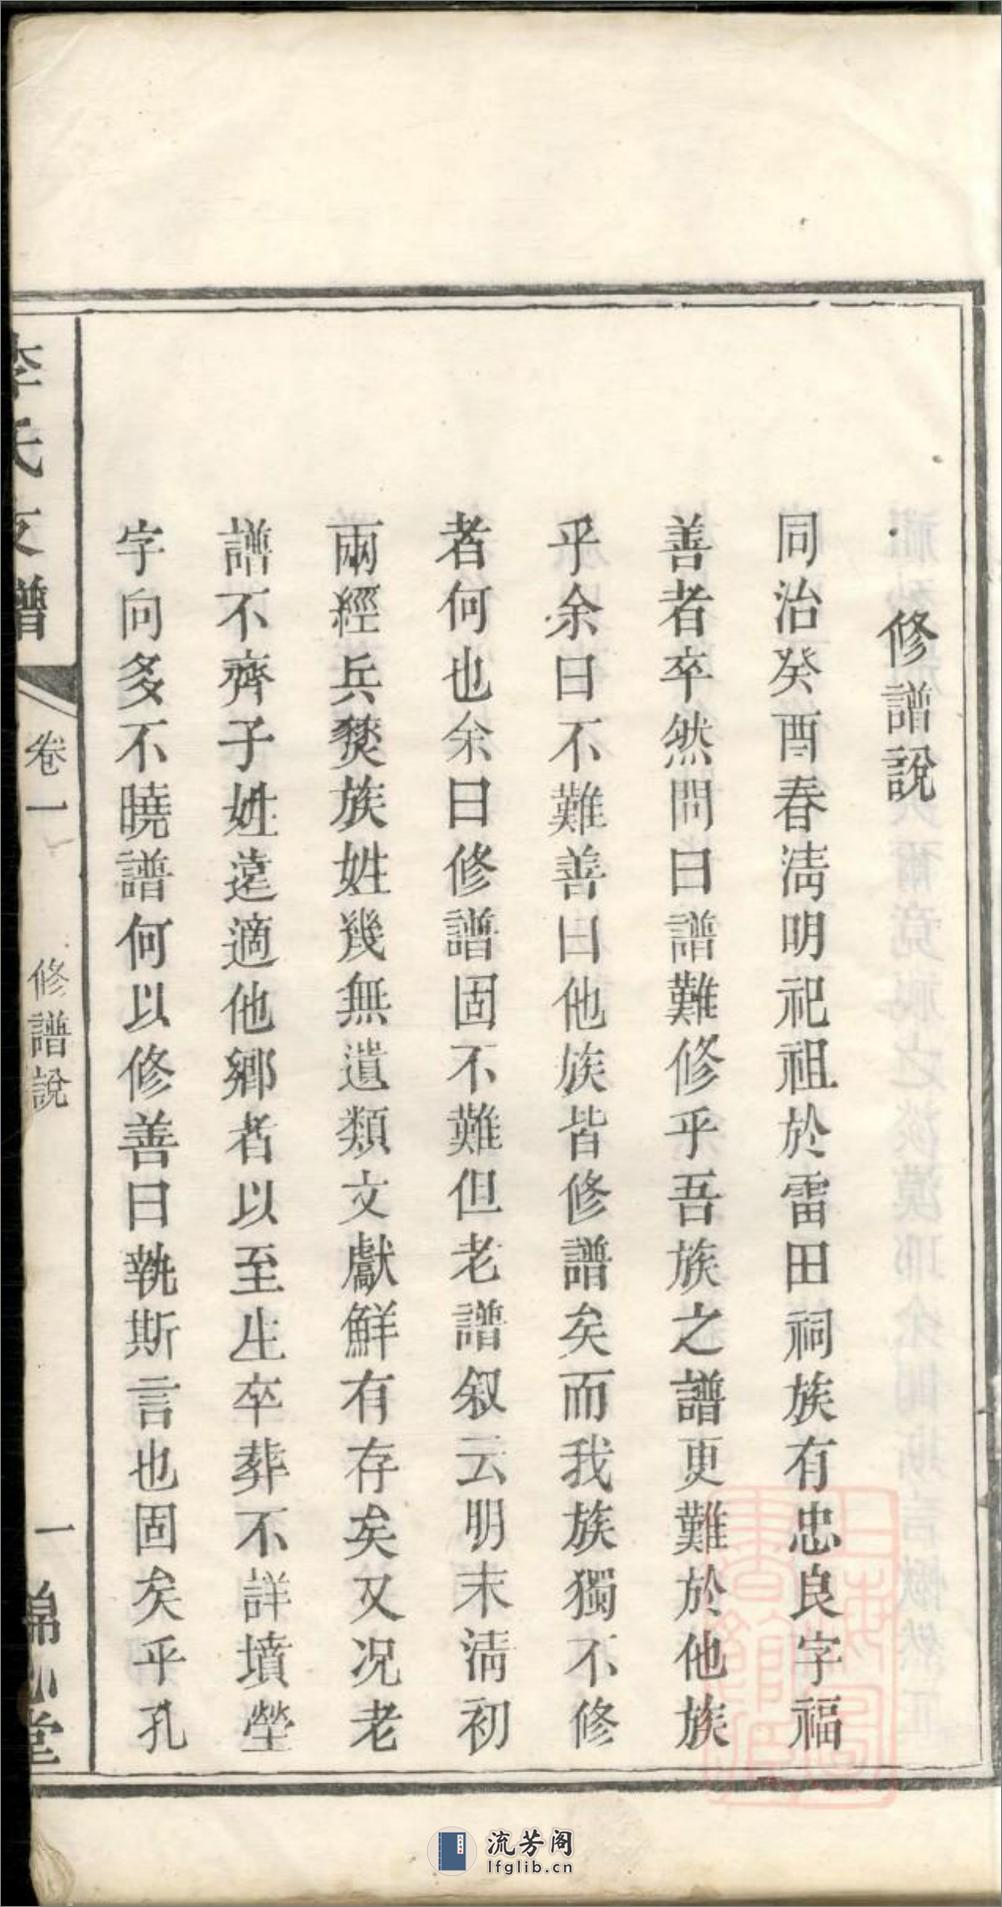 修譜說
同治癸酉春淸明祀祖於雷田祠族有忠良字福
善者卒然問曰譜難修乎吾族之譜更難於他族
乎余曰不難善曰他族皆修譜矣而我族獨不修
者何也余曰修譜固不難但老譜叙云明末淸初
兩經兵燹族姓幾無遺類文獻鮮有存矣又况老
譜不齊子姓遠適他鄉者以至生卒葬不詳墳塋
字向多不曉譜何以修善曰執斯言也固矣乎孔
李氏支譜
卷一
修譜說
一
錦心堂
流芳阁
lfglib.cn